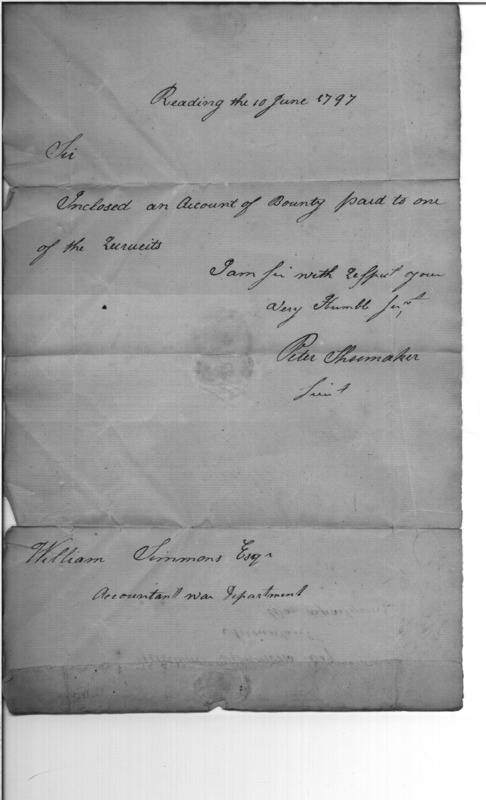 Reading the 10 June 1797
Sir
Inclosed an Account of Bounty paid to one
of the Recruits
I am Sir with Respect your
Very Humble Servt
Peter Shoemaker
Lieut
William Simmons Esqr
Accountant war Department